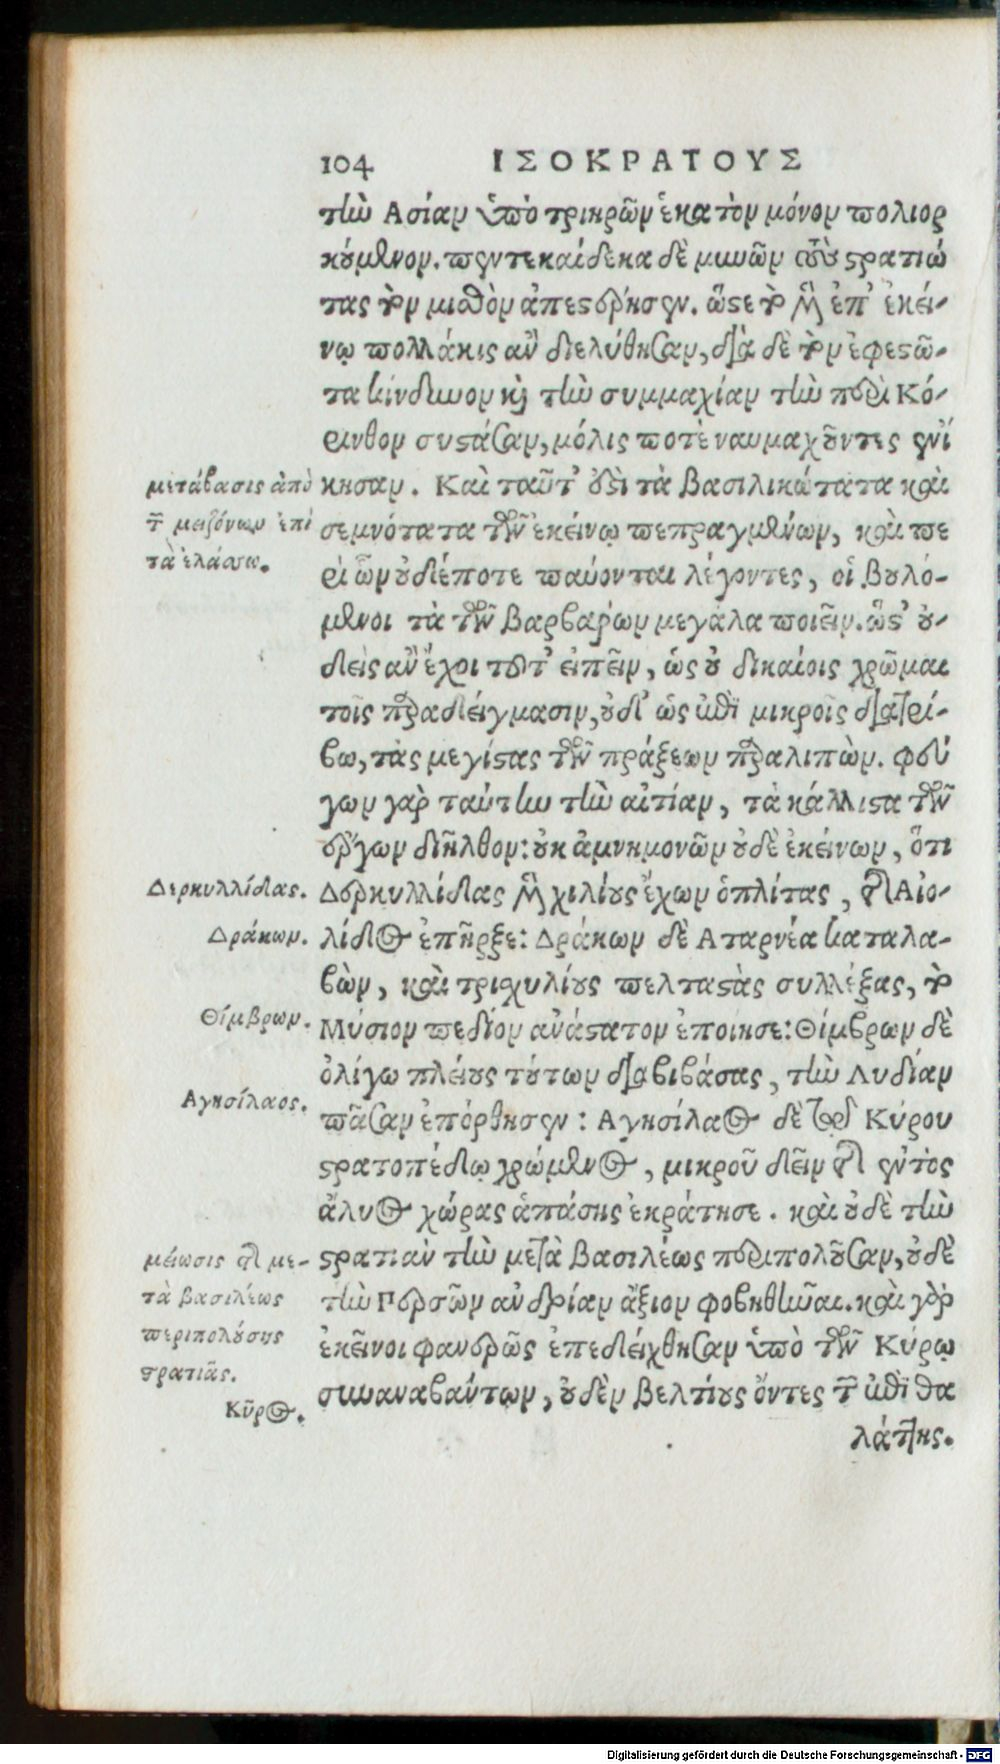 104 ΙΣΟΚΡΑΤΟΥΣ
τὴν Ἀσίαν ὑπὸ τριηρῶν ἑκατὸν μόνον πολιορ
κούμενον. πεντεκαίδεκα δὲ μηνῶν τοὺς στρατιώ
τας τὸν μισθὸν ἀπεστέρησεν. ὥστε τὸ μὲν ἐπ' ἐκεί-
νῳ πολλάκις ἂν διελύθησαν, διὰ δὲ τὸν ἐφεστῶ-
τα κίνδυνον καὶ τὴν συμμαχίαν τὴν περὶ Κό-
ρινθον συστᾶσαν, μόλις ποτὲ ναυμαχοῦντες ἐνί
κησαν. Καὶ ταῦτ' ἐστὶ τὰ βασιλικώτατα καὶ
σεμνότατα τῶν ἐκείνῳ πεπραγμένων, καὶ πε
ρὶ ὧν οὐδέποτε παύονται λέγοντες, οἱ βουλό-
μενοι τὰ τῶν βαρβάρων μεγάλα ποιεῖν. ὥστ' οὐ-
δεὶς ἂν ἔχοι τοῦτ' εἰπεῖν, ὡς οὐ δικαίοις χρῶμαι
τοῖς παραδείγμασιν, οὐδ' ὡς ἐπὶ μικροῖς διατρί-
βω, τὰς μεγίστας τῶν πράξεων παραλιπών. φεύ
γων γὰρ ταύτην τὴν αἰτίαν, τὰ κάλλιστα τῶν
ἔργων διῆλθον: οὐκ ἀμνημονῶν οὐδὲ ἐκείνων, ὅτι
Δερκυλλίδας μὲν χιλίους ἔχων ὁπλίτας, τῆς Αἰο-
λίδος ἐπῆρξε: Δράκων δὲ Ἀταρνέα καταλα-
βὼν, καὶ τρισχιλίους πελταστὰς συλλέξας, τὸ
Μύσιον πεδίον ἀνάστατον ἐποίησε: Θίμβρων δὲ
ὀλίγῳ πλείους τούτων διαβιβάσας, τὴν Λυδίαν
πᾶσαν ἐπόρθησεν: Ἀγησίλαος δὲ τῷ Κύρου
στρατοπέδῳ χρώμενος, μικροῦ δεῖν τῆς ἐντὸς
Ἅλυος χώρας ἁπάσης ἐκράτησε. καὶ οὐδὲ τὴν
στρατιὰν τὴν μετὰ βασιλέως περιπολοῦσαν, οὐδὲ
τὴν Περσῶν ἀνδρίαν ἄξιον φοβηθῆναι. καὶ γὰρ
ἐκεῖνοι φανερῶς ἐπεδείχθησαν ὑπὸ τῶν Κύρῳ
συναναβάντων, οὐδὲν βελτίους ὄντες τῶν ἐπὶ θα
λάττης.
μετάβασις ἀπὸ
τῶν μειζόνων ἐπὶ
τὰ ἐλάσσω.
Δερκυλλίδας.
Δράκων.
Θίμβρων.
Ἀγησίλαος.
μείωσις τῆς με-
τὰ βασιλέως
περιπολούσης
στρατιᾶς.
Κῦρος.
Digitalisierung gefördert durch die Deutsche Forschungsgemeinschaft - DFG